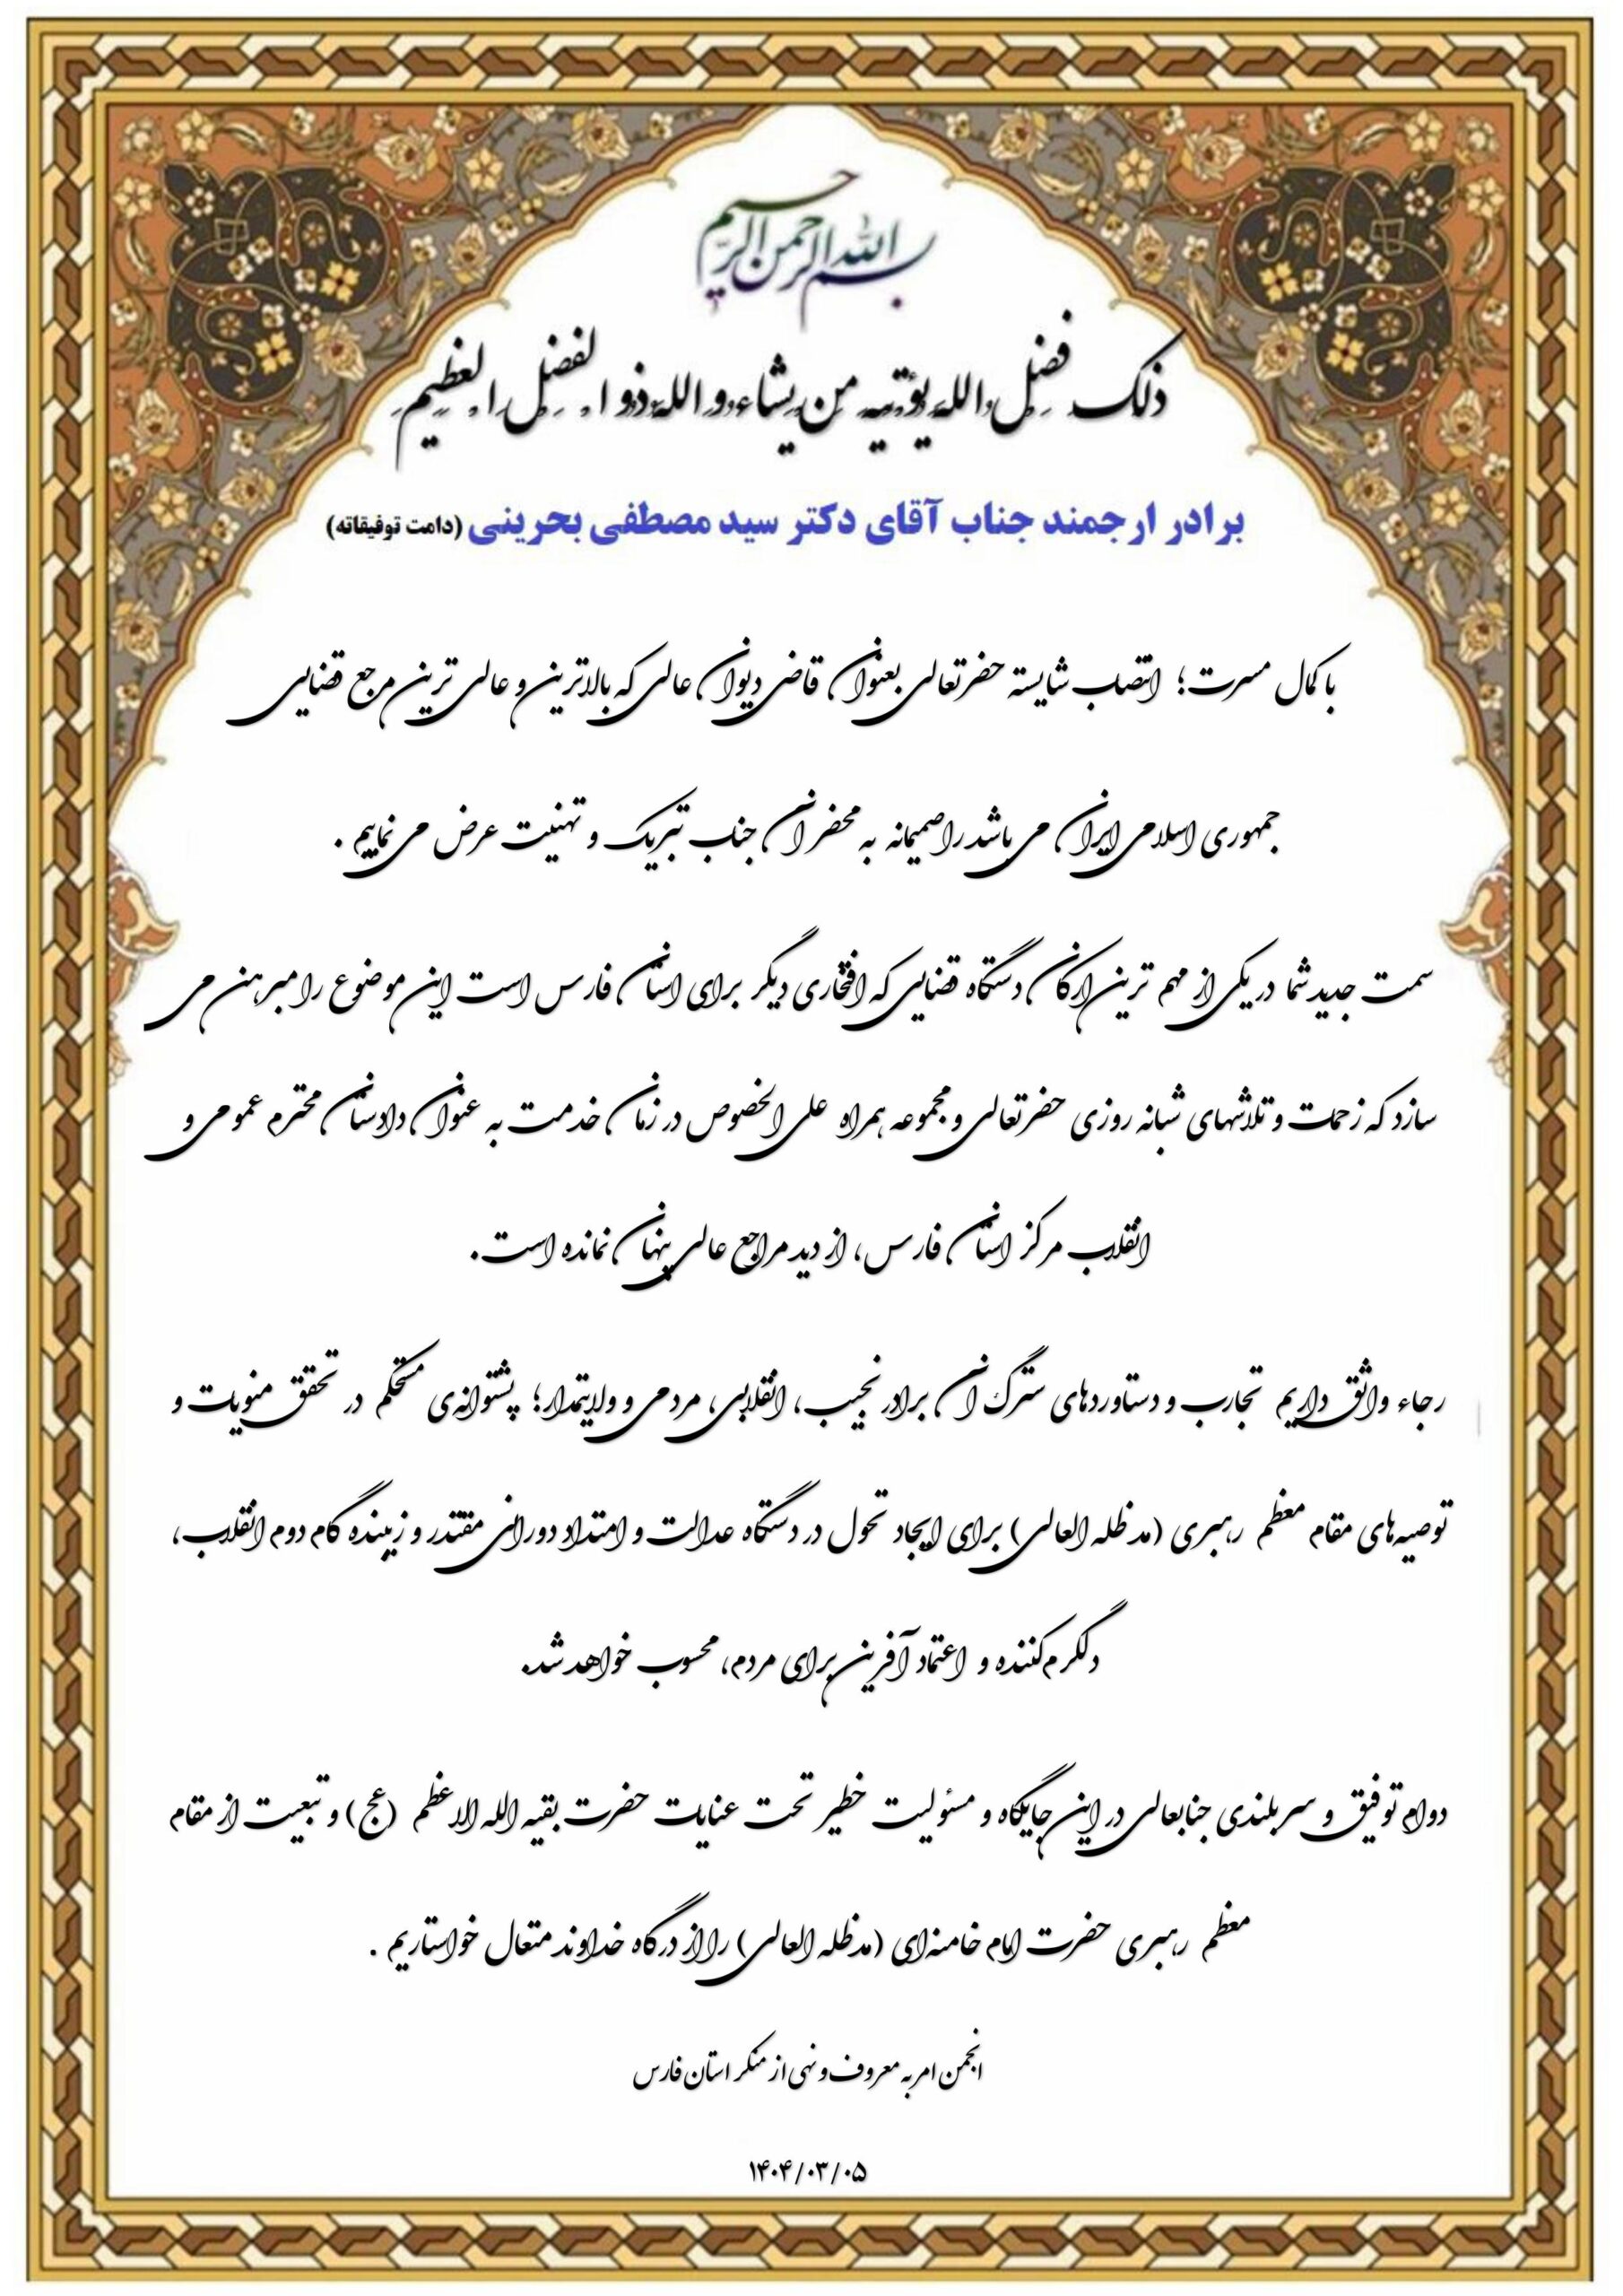 بسم الله الرحمن الرحیم
ذلک فضل الله یؤتیه من یشاء و الله ذو الفضل العظیم
برادر ارجمند جناب آقای دکتر سید مصطفی بحرینی (دامت توفیقاته)
با کمال مسرت؛ انتصاب شایسته حضرتعالی بعنوان قاضی دیوان عالی که بالاترین و عالی ترین مرجع قضایی
جمهوری اسلامی ایران می باشد را صمیمانه به محضر آن جناب تبریک و تهنیت عرض می نماییم .
سمت جدید شما در یکی از مهم ترین ارکان دستگاه قضایی که افتخاری دیگر برای استان فارس است این موضوع را مبرهن می
سازد که زحمات و تلاشهای شبانه روزی حضرتعالی و مجموعه همراه علی الخصوص در زمان خدمت به عنوان دادستان محترم عمومی و
انقلاب مرکز استان فارس، از دید مراجع عالی پنهان نمانده است.
رجاء واثق داریم تجارب و دستاوردهای سترگ آن برادر نجیب، انقلابی، مردمی و ولایتمدار؛ پشتوانه‌ی مستحکم در تحقق منویات و
توصیه‌های مقام معظم رهبری (مد ظله العالی) برای ایجاد تحول در دستگاه عدالت و امتداد دورانی مقتدر و زیبنده گام دوم انقلاب،
دلگرم‌کننده و اعتماد آفرین برای مردم، محسوب خواهد شد.
دوام توفیق و سربلندی جنابعالی در این جایگاه و مسئولیت خطیر تحت عنایات حضرت بقیه الله الاعظم (عج) و تبعیت از مقام
معظم رهبری حضرت امام خامنه‌ای (مدظله العالی) را از درگاه خداوند متعال خواستاریم .
انجمن امر به معروف و نهی از منکر استان فارس
۱۴۰۴/۰۳/۰۵